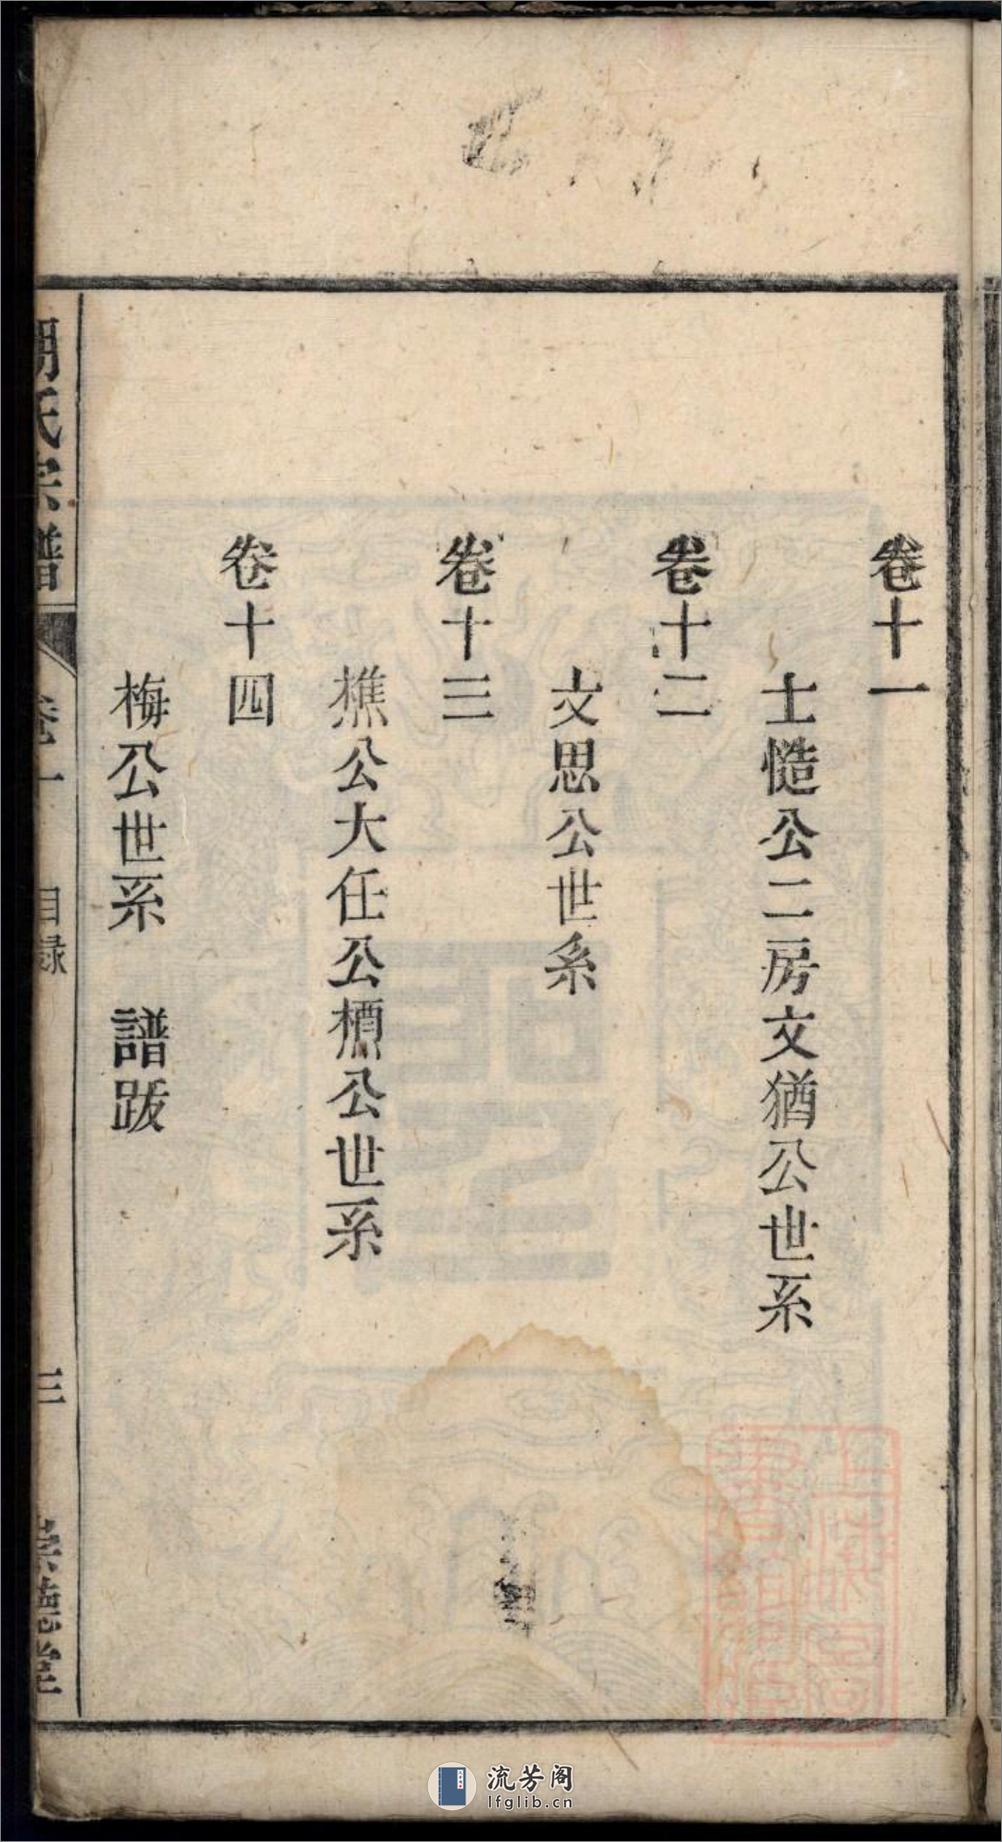 卷十一
士慥公二房文猶公世系
卷十二
文思公世系
卷十三
樵公大任公槱公世系
卷十四
梅公世系 譜跋
胡氏宗譜 卷一 目録 三 崇德堂
流芳阁
lfglib.cn